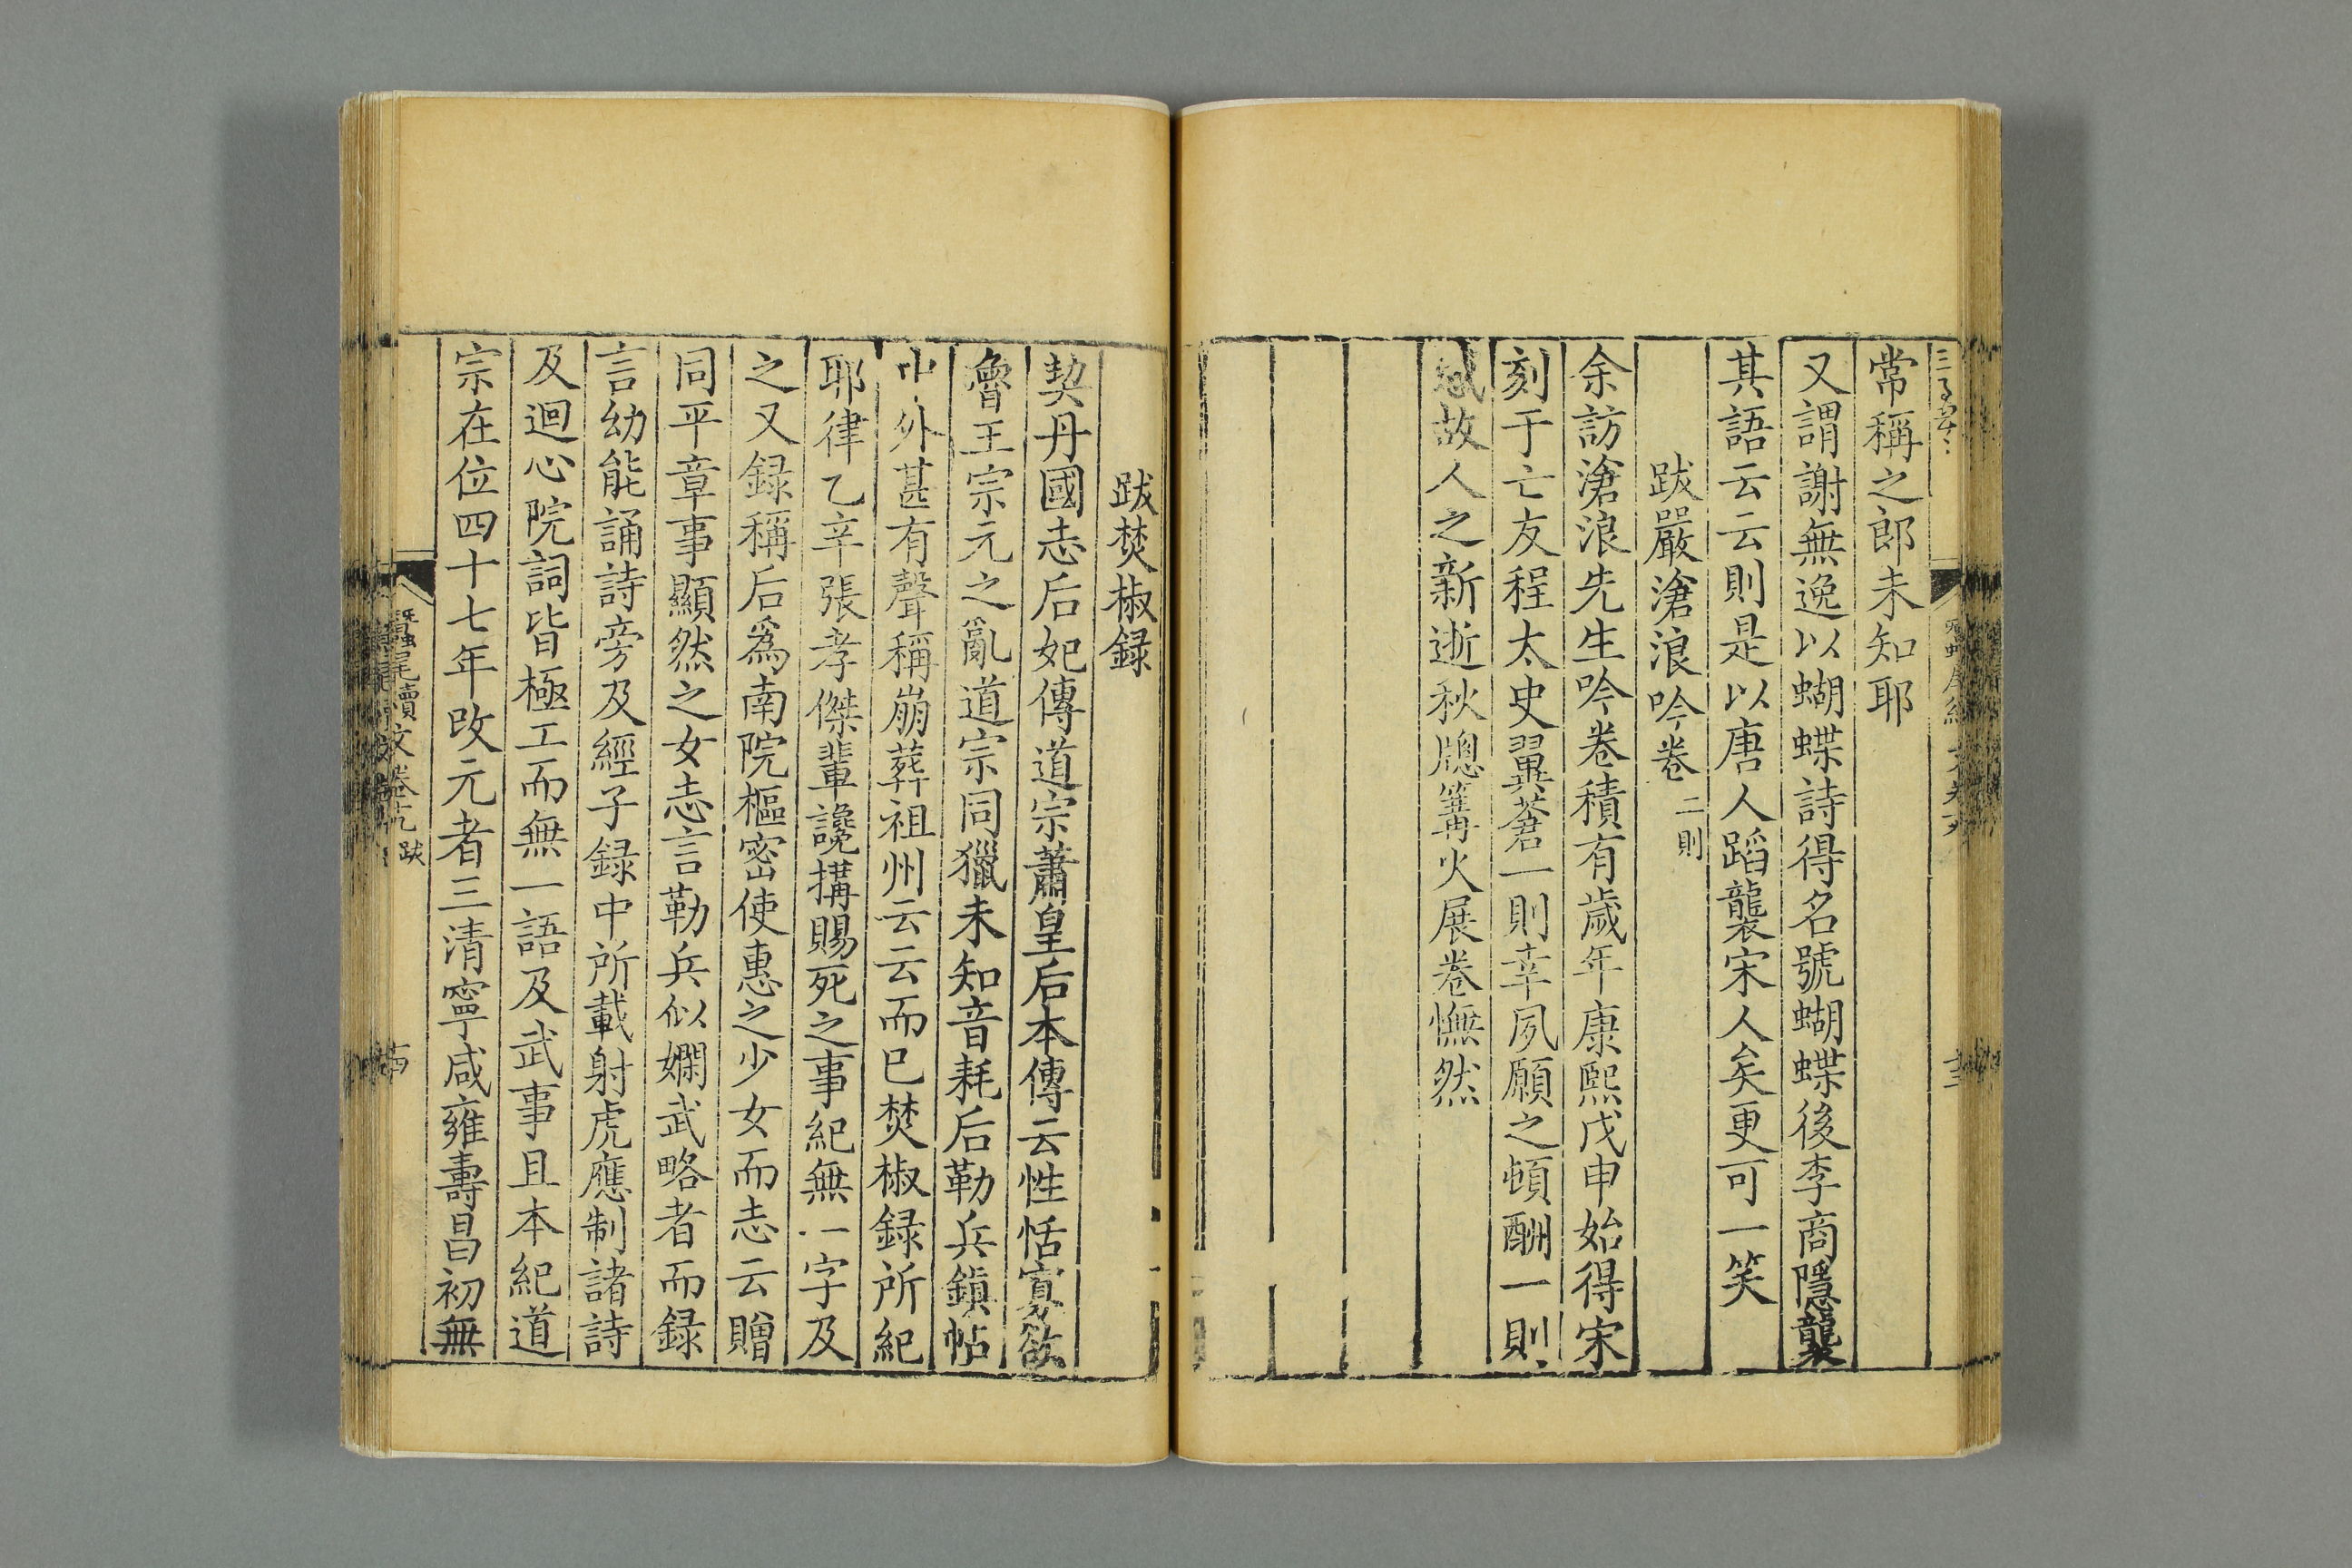 常稱之郎未知耶
又謂謝無逸以蝴蝶詩得名號蝴蝶後李商隱襲
其語云云則是以唐人蹈襲宋人矣更可一笑
跋嚴滄浪吟卷 二則
余訪滄浪先生吟卷積有歲年康熙戊申始得宋
刻于亡友程太史翼蒼一則幸夙願之頓酬一則
感故人之新逝秋牕篝火展卷憮然
跋焚椒録
契丹國志后妃傳道宗蕭皇后本傳云性恬寡欲
魯王宗元之亂道宗同獵未知音耗后勒兵鎮帖
中外甚有聲稱崩葬祖州云云而已焚椒録所紀
耶律乙辛張孝傑輩讒搆賜死之事紀無一字及
之又録稱后爲南院樞密使惠之少女而志云贈
同平章事顯然之女志言勒兵似嫻武略者而録
言幼能誦詩旁及經子録中所載射虎應制諸詩
及迴心院詞皆極工而無一語及武事且本紀道
宗在位四十七年改元者三清寧咸雍壽昌初無
蠶尾續文卷 跋